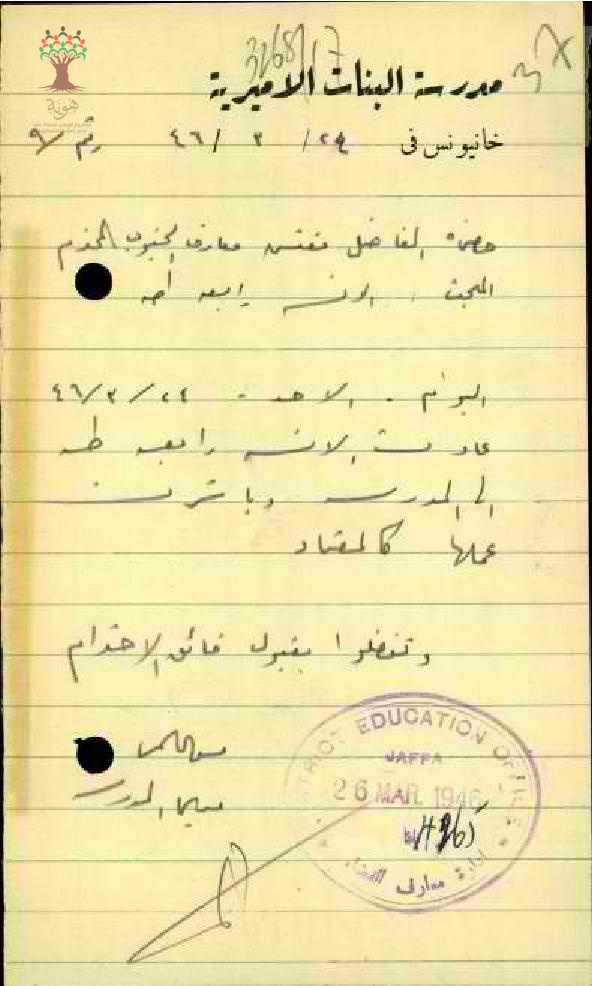 3268/17
مدرسة البنات الاميرية
خانيونس فى ٢٤/ ٣ /٤٦ رقم ٩/
هوية
حضرة الفاضل مفتش معارف الجنوب المحترم
المبحث . الانسه رابعه
اليوم . الاحد . ٢٤/٣/٤٦
عادت الانسه رابعه طه
الى المدرسه وباشرت
عملها كالمعتاد
وتفضلوا بقبول فائق الاحترام
المدرسه
DISTRICT EDUCATION OFFICE
JAFFA
26 MAR 1946
ادارة معارف